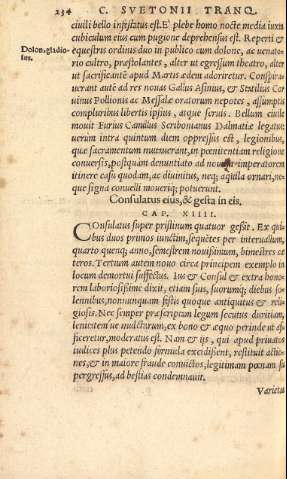 234 C. SVETONII TRANQ.
ciuili bello insistatus est. E' plebe homo nocte media iuxta
cubiculum eius cum pugione deprehensus est. Reperti &
Dolon, gladio-
lus.
equestris ordinis duo in publico cum dolone, ac venato-
rio cultro, præstolantes, alter ut egressum theatro, alter
ut sacrificantē apud Martis ædem adoriretur. Conspira-
uerant autē ad res nouas Gallus Asinius, & Statilius Cor
uinus Pollionis ac Messalæ oratorum nepotes, assumptis
compluribus libertis ipsius, atque seruis. Bellum ciuile
mouit Furius Camillus Scribonianus Dalmatiæ legatus:
uerum intra quintum diem oppressus est, legionibus,
quæ sacramentum mutauerant, in pœnitentiam religione
conuersis, postquam denuntiato ad nouum imperatorem
itinere casu quodam, ac diuinitus, neq; aquila ornari, ne-
que signa conuelli mouériq; potuerunt.
Consulatus eius, & gesta in eis.
CAP. XIIII.
Consulatus super pristinum quatuor gessit. Ex qui-
bus duos primos iunctim, sequētes per interuallum,
quarto quenq; anno, semestrem nouissimum, bimestres ce
teros. Tertium autem nouo circa principem exemplo in
locum demortui suffectus. Ius & Consul & extra hono-
rem laboriosissime dixit, etiam suis, suorumq; diebus so-
lennibus, nonnunquam festis quoque antiquitus & reli-
giosis. Nec semper præscriptum legum secutus duritiam,
lenitatem ue multarum, ex bono & æquo perinde ut af-
ficeretur, moderatus est. Nam & iis, qui apud priuatos
iudices plus petendo formula excidissent, restituit actio-
nes, & in maiore fraude conuictos, legitimam pœnam su
pergressus, ad bestias condemnauit.
Varietas